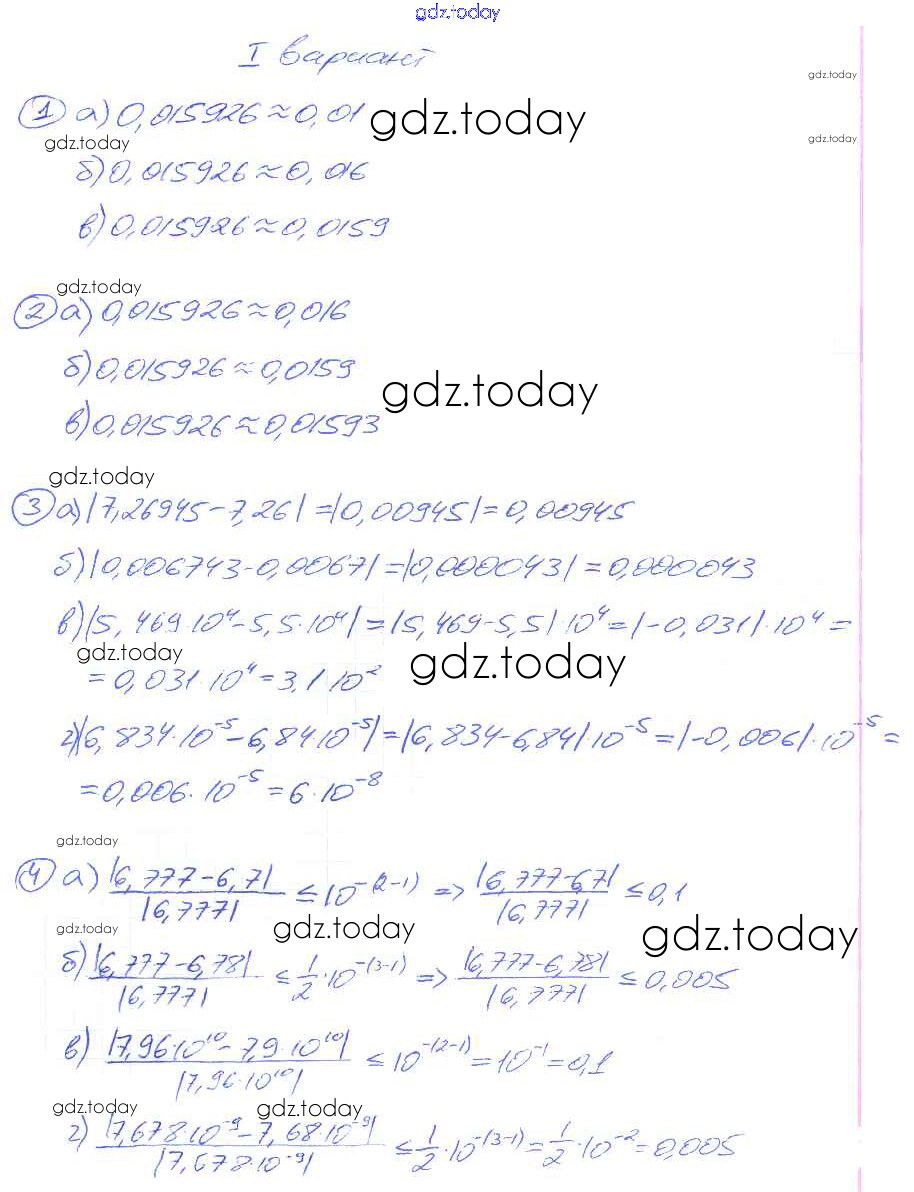 gdz.today
I вариант
gdz.today
① а) 0,015926 ≈ 0,01
gdz.today
gdz.today
gdz.today
б) 0,015926 ≈ 0,016
в) 0,015926 ≈ 0,0159
gdz.today
② а) 0,015926 ≈ 0,016
б) 0,015926 ≈ 0,0159
gdz.today
в) 0,015926 ≈ 0,01593
gdz.today
③ а) |7,26945 - 7,26| = |0,00945| = 0,00945
б) |0,006743 - 0,0067| = |0,000043| = 0,000043
в) |5,469·10⁴ - 5,5·10⁴| = |5,469 - 5,5|·10⁴ = |-0,031|·10⁴ =
gdz.today
gdz.today
= 0,031·10⁴ = 3,1·10²
г) |6,834·10⁻⁵ - 6,84·10⁻⁵| = |6,834 - 6,84|·10⁻⁵ = |-0,006|·10⁻⁵ =
= 0,006·10⁻⁵ = 6·10⁻⁸
gdz.today
④ а) |6,777 - 6,7| / |6,777| ≤ 10⁻⁽²⁻¹⁾ => |6,777 - 6,7| / |6,777| ≤ 0,1
gdz.today
gdz.today
gdz.today
б) |6,777 - 6,78| / |6,777| ≤ 1/2·10⁻⁽³⁻¹⁾ => |6,777 - 6,78| / |6,777| ≤ 0,005
в) |7,96·10¹⁰ - 7,9·10¹⁰| / |7,96·10¹⁰| ≤ 10⁻⁽²⁻¹⁾ = 10⁻¹ = 0,1
gdz.today
gdz.today
г) |7,678·10⁻⁹ - 7,68·10⁻⁹| / |7,678·10⁻⁹| ≤ 1/2·10⁻⁽³⁻¹⁾ = 1/2·10⁻² = 0,005